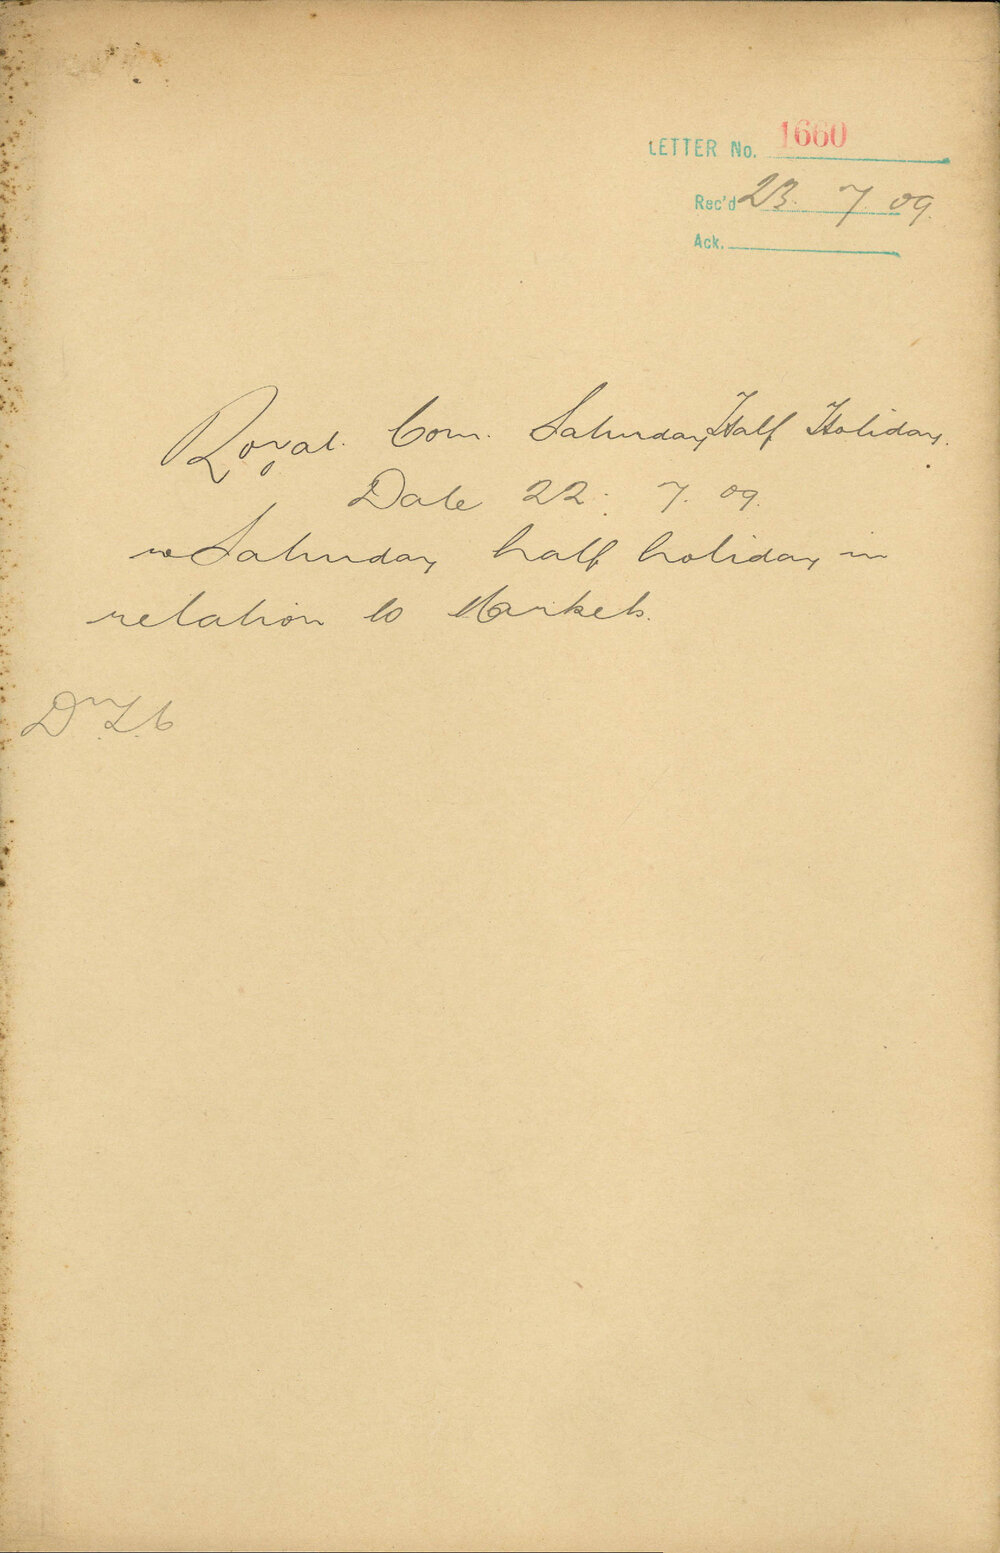 LETTER No. 1660
Rec'd 23. 7. 09.
Ack.
Royal. Com. Saturday Half Holiday.
Date 22. 7. 09.
re Saturday half holiday in
relation to Markets.